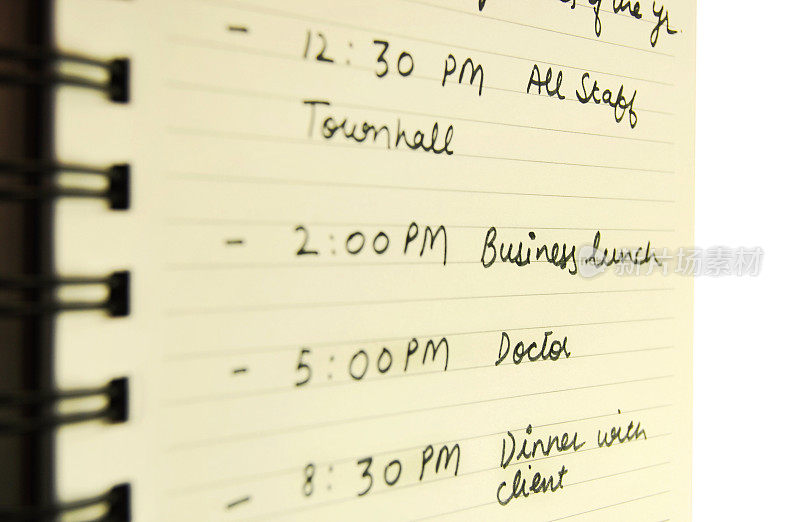 of the yr.
- 12:30 PM All Staff
Townhall
- 2:00 PM Business lunch
- 5:00 PM Doctor
- 8:30 PM Dinner with
client
新片场素材